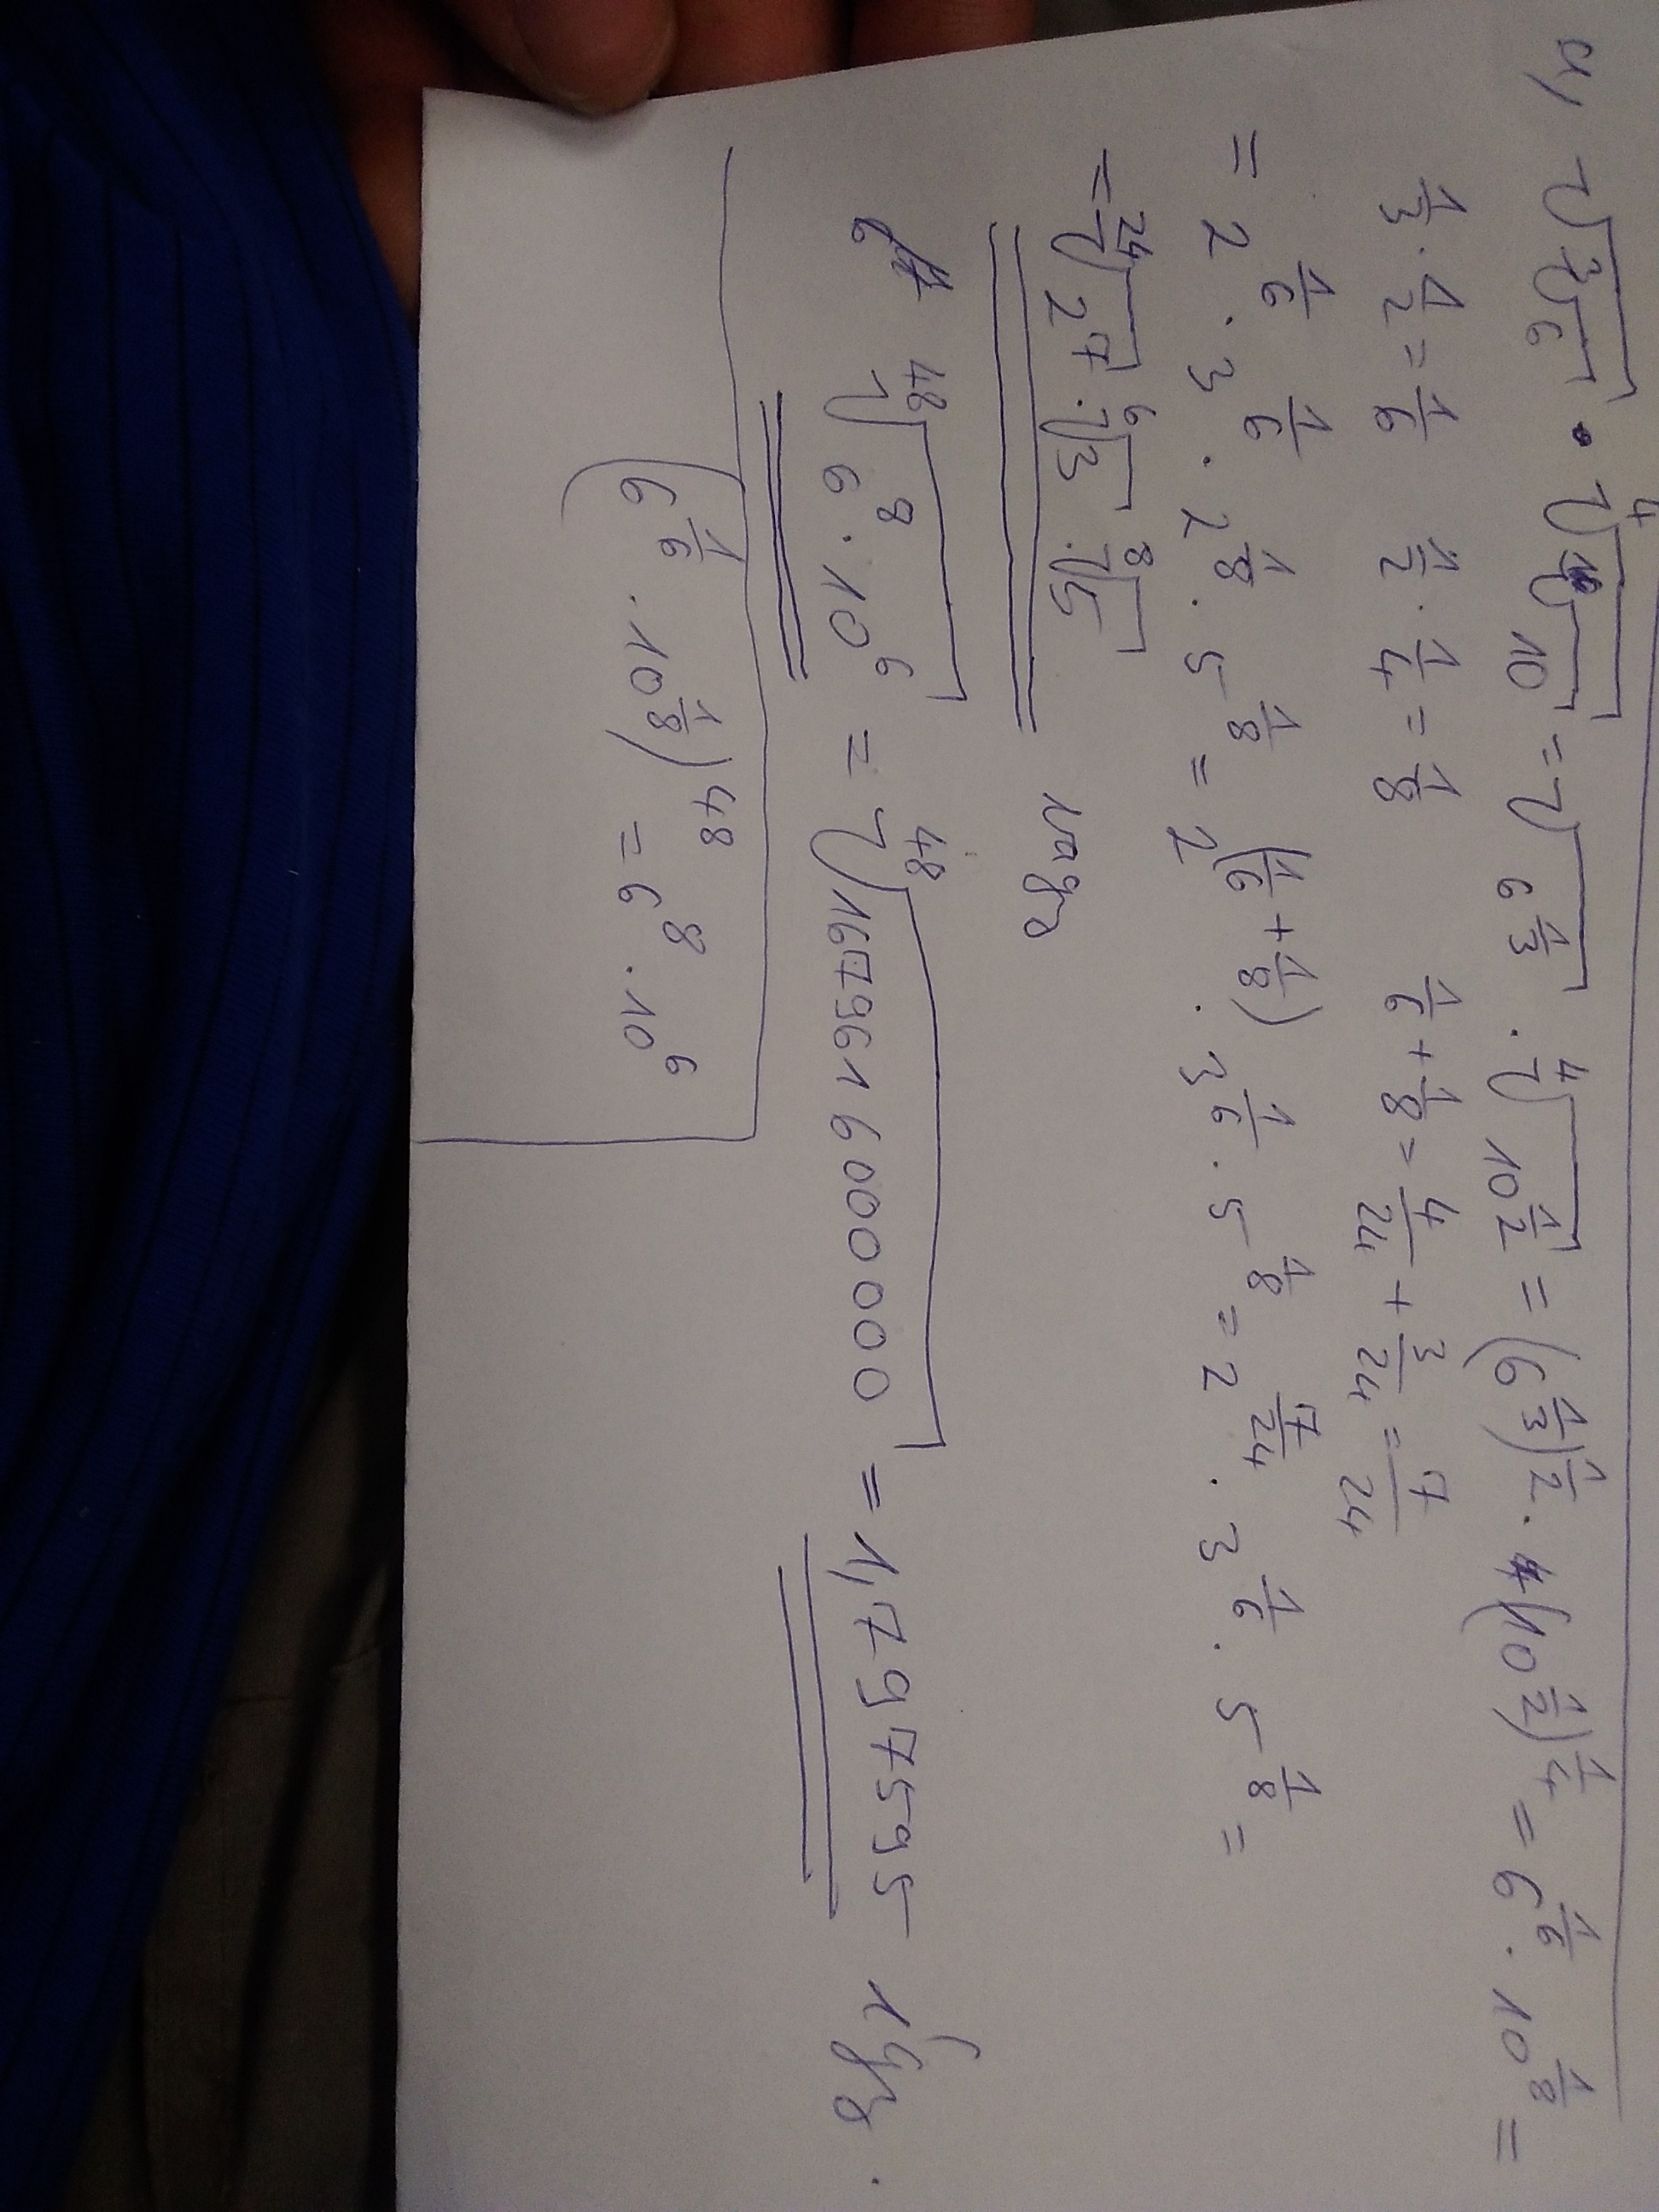 a, √(³√6) · ⁴√(√10) = √(6^(1/3)) · ⁴√(10^(1/2)) = (6^(1/3))^(1/2) · (10^(1/2))^(1/4) = 6^(1/6) · 10^(1/8) =
1/3 · 1/2 = 1/6 1/2 · 1/4 = 1/8 1/6 + 1/8 = 4/24 + 3/24 = 7/24
= 2^(1/6) · 3^(1/6) · 2^(1/8) · 5^(1/8) = 2^(1/6 + 1/8) · 3^(1/6) · 5^(1/8) = 2^(7/24) · 3^(1/6) · 5^(1/8) =
= ²⁴√(2^7) · ⁶√3 · ⁸√5 vagy
⁴⁸√(6^8 · 10^6) = ⁴⁸√(1679616000000) = 1,7976595 így.
(6^(1/6) · 10^(1/8))^48 = 6^8 · 10^6